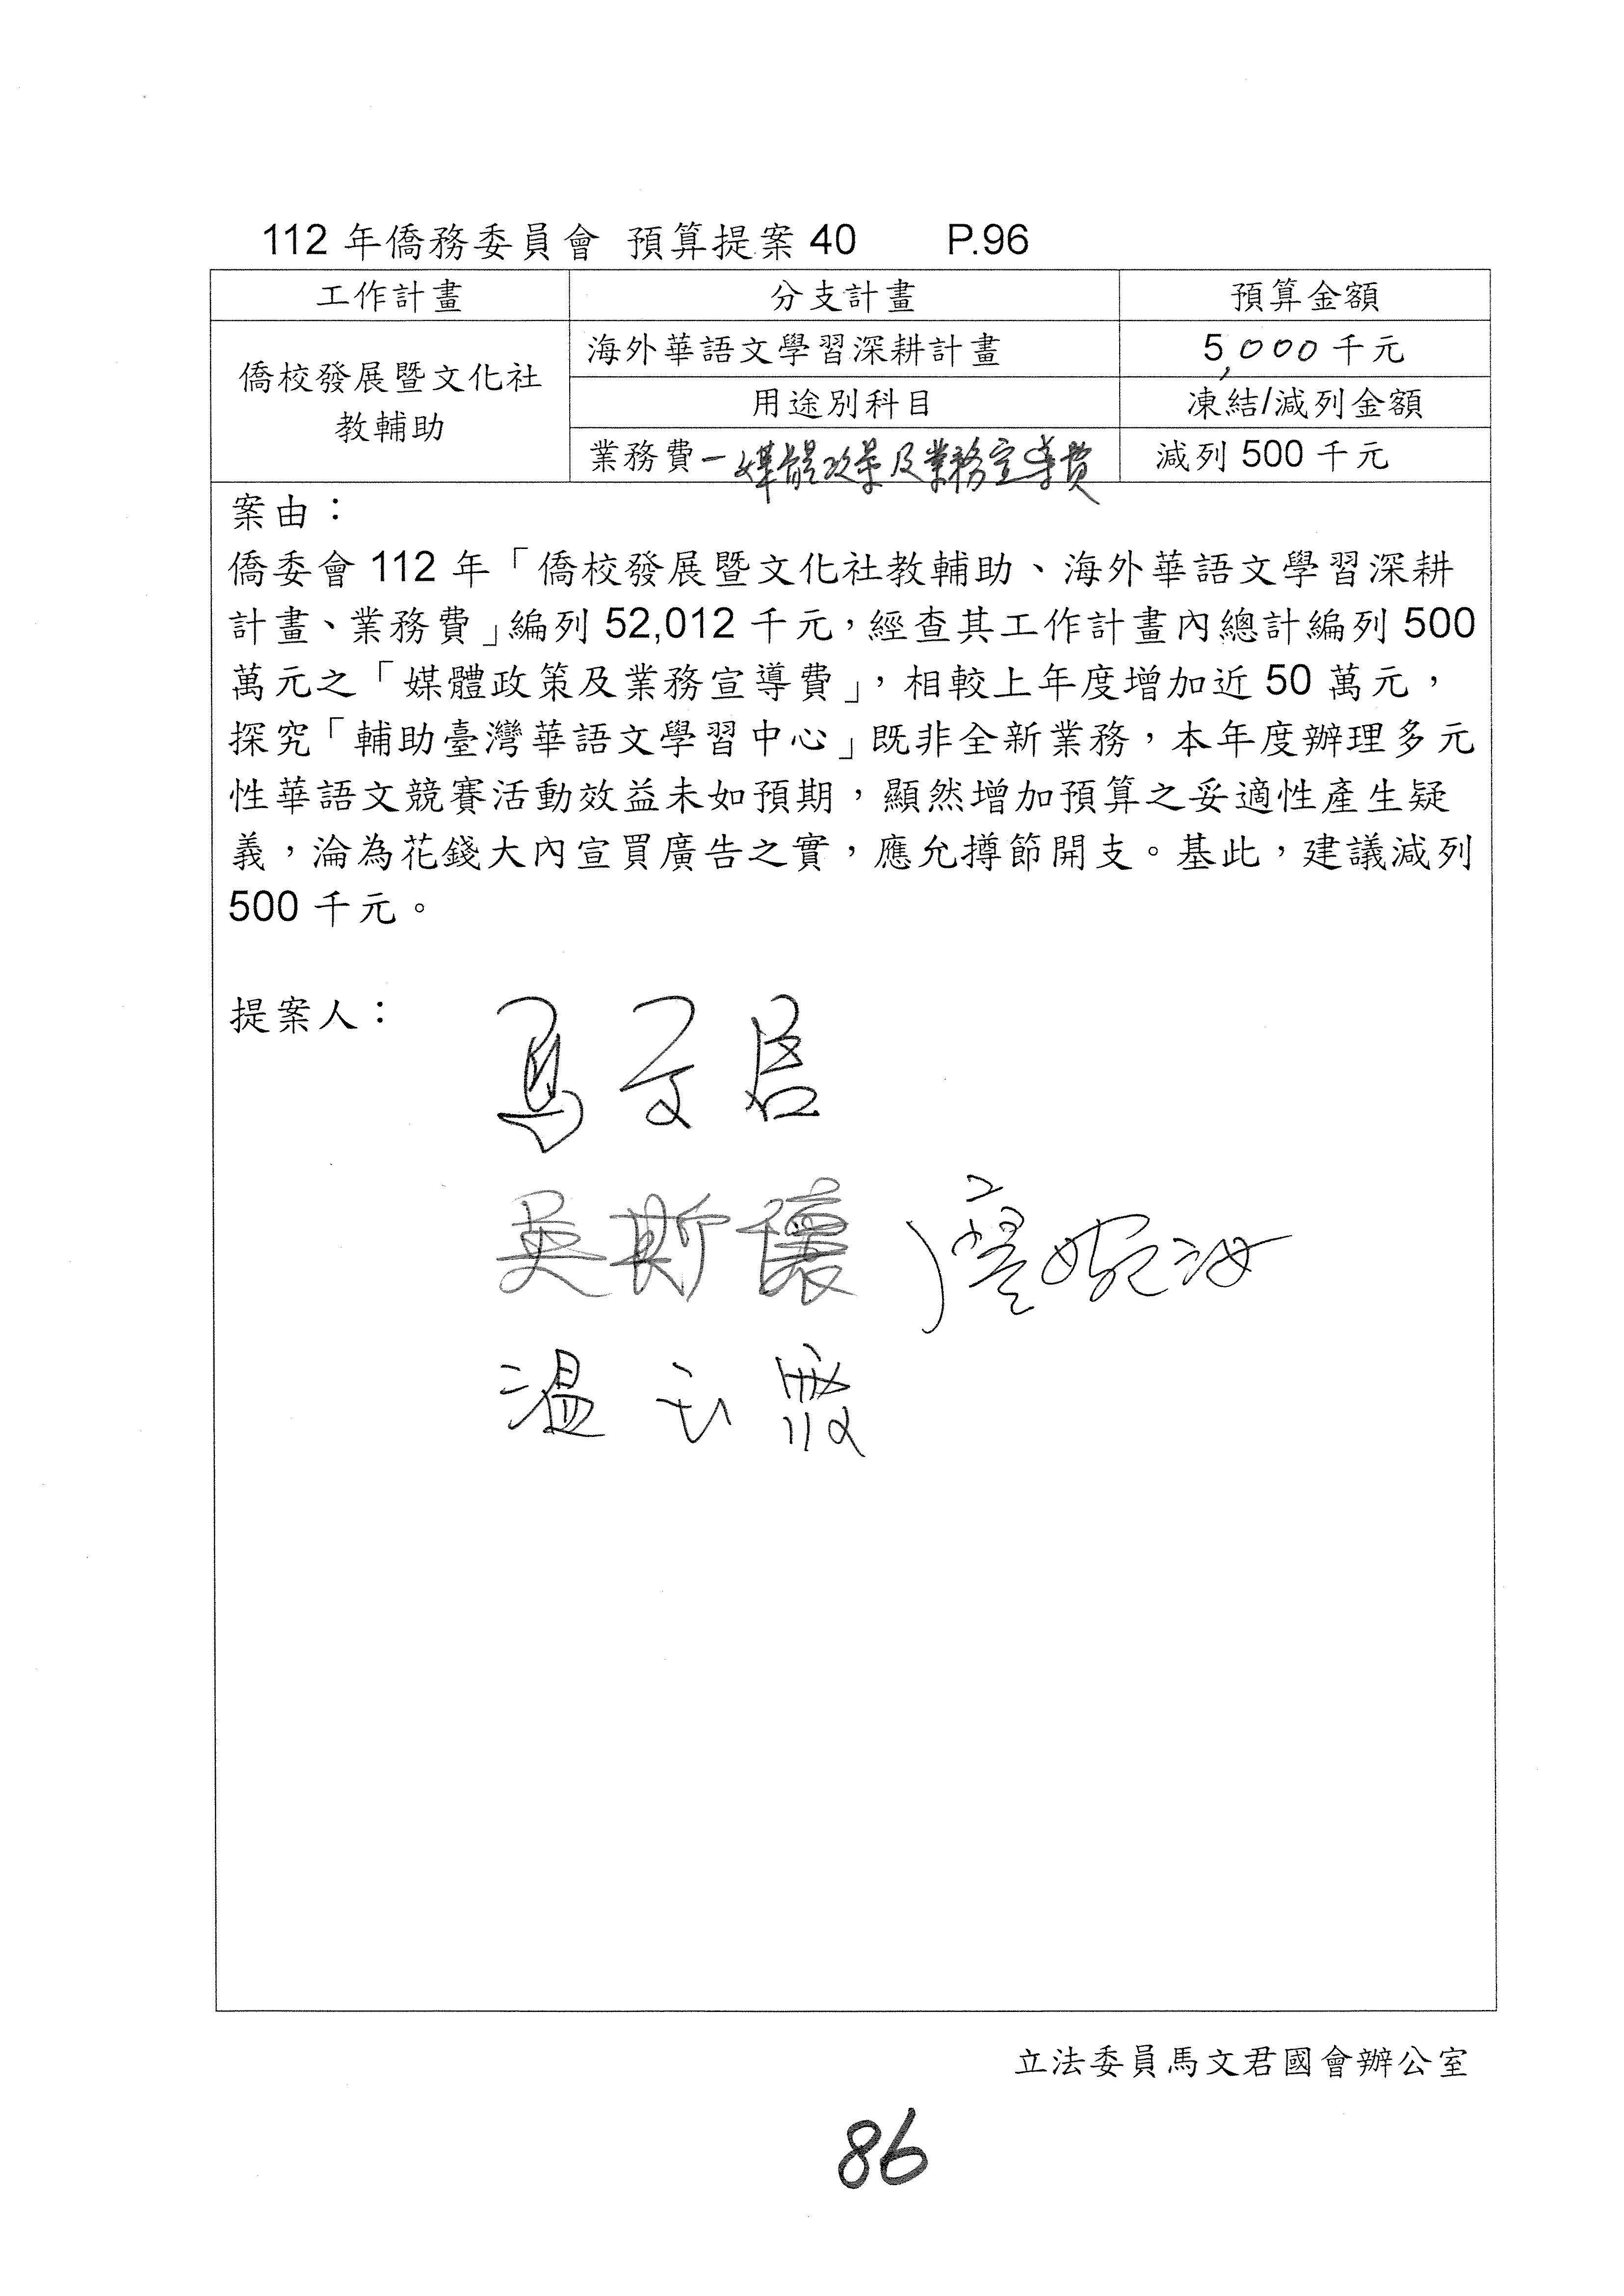 112 年僑務委員會 預算提案 40 P.96
工作計畫 分支計畫 預算金額
僑校發展暨文化社
教輔助
海外華語文學習深耕計畫 5,000千元
用途別科目 凍結/減列金額
業務費－媒體政策及業務宣導費 減列 500 千元
案由：
僑委會 112 年「僑校發展暨文化社教輔助、海外華語文學習深耕
計畫、業務費」編列 52,012 千元，經查其工作計畫內總計編列 500
萬元之「媒體政策及業務宣導費」，相較上年度增加近 50 萬元，
探究「輔助臺灣華語文學習中心」既非全新業務，本年度辦理多元
性華語文競賽活動效益未如預期，顯然增加預算之妥適性產生疑
義，淪為花錢大內宣買廣告之實，應允撙節開支。基此，建議減列
500 千元。
提案人：
馬文君
吳斯懷 廖婉汝
溫玉霞
立法委員馬文君國會辦公室
86